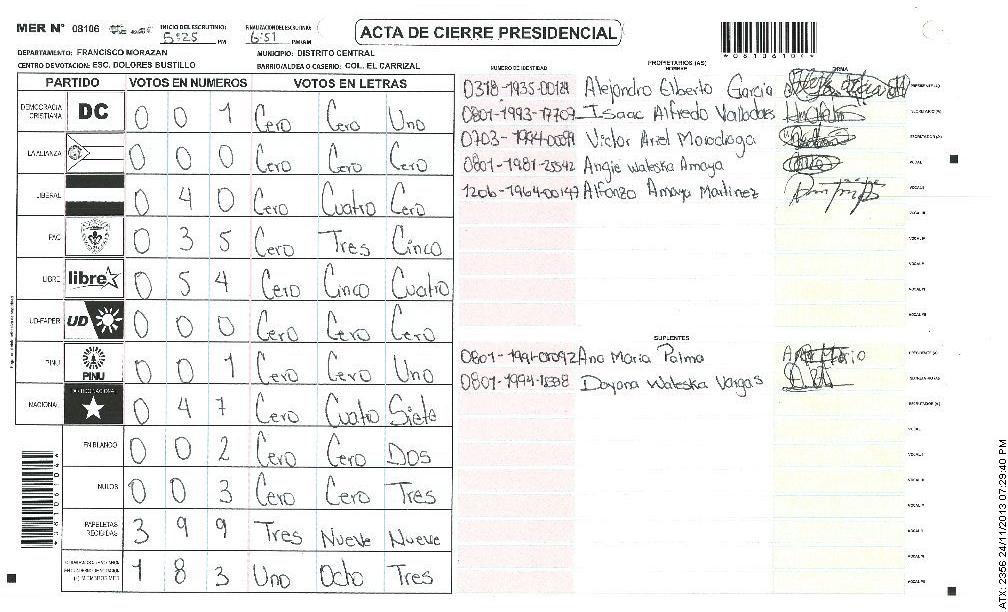 MER N° 08106 INICIO DEL ESCRUTINIO: 5:25 PM FINALIZACION DEL ESCRUTINIO: 6:51 PM/AM
ACTA DE CIERRE PRESIDENCIAL
DEPARTAMENTO: FRANCISCO MORAZAN MUNICIPIO: DISTRITO CENTRAL
CENTRO DE VOTACION: ESC. DOLORES BUSTILLO BARRIO/ALDEA O CASERIO: COL. EL CARRIZAL
PARTIDO VOTOS EN NUMEROS VOTOS EN LETRAS
DEMOCRACIA CRISTIANA DC 0 0 1 Cero Cero Uno
LA ALIANZA 0 0 0 Cero Cero Cero
LIBERAL 0 4 0 Cero Cuatro Cero
PAC 0 3 5 Cero Tres Cinco
LIBRE libre 0 5 4 Cero Cinco Cuatro
UD-FAPER UD 0 0 0 Cero Cero Cero
PINU PINU 0 0 1 Cero Cero Uno
NACIONAL 0 4 7 Cero Cuatro Siete
EN BLANCO 0 0 2 Cero Cero Dos
NULOS 0 0 3 Cero Cero Tres
PAPELETAS RECIBIDAS 3 9 9 Tres Nueve Nueve
1 8 3 Uno Ocho Tres
PROPIETARIOS (AS)
NUMERO DE IDENTIDAD NOMBRE FIRMA
Alejandro Elberto Garcia
0801-1993-17709 Isaac Alfredo Valladares
Victor Ariel
0801-1981-25542 Angie Waleska Amaya
1206-1964-00147 Alfonzo Amaya Martinez
SUPLENTES
Ana Maria Palma
Dayana Waleska Vargas
ATX: 2356 24/11/2013 07:29:40 PM